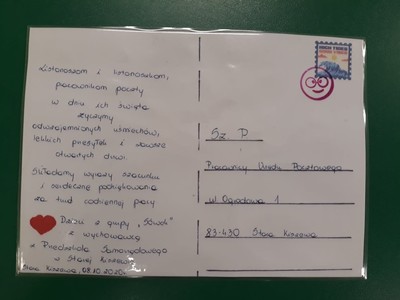 Listonoszom i listonoszkom,
pracownikom poczty
w dniu ich święta
życzymy
odwzajemnionych uśmiechów,
lekkich przesyłek i zawsze
otwartych drzwi.
Składamy wyrazy szacunku
i serdeczne podziękowania
za trud codziennej pracy
Dzieci z grupy "Sówek"
z wychowawcą
z Przedszkola Samorządowego
w Starej Kiszewie
Stara Kiszewa, 09.10.2020
HIGH TATRAS
Sz P
Pracownicy Urzędu Pocztowego
ul. Ogrodowa 1
83-430 Stara Kiszewa